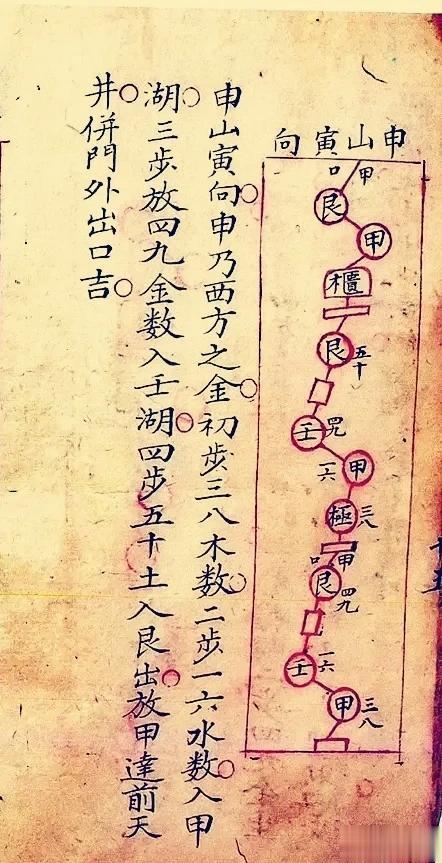 申山寅向
口甲
艮
甲
櫃
艮 五十
壬 四九
一六 甲
極 三八
口甲
艮 四九
壬 一六
甲 三八
申山寅向○申乃西方之金○初歩三八木数○二歩一六水数○入甲
湖○三歩放四九金数入壬湖○四歩五十土入艮出○放甲達前天
井○併門外出口吉○